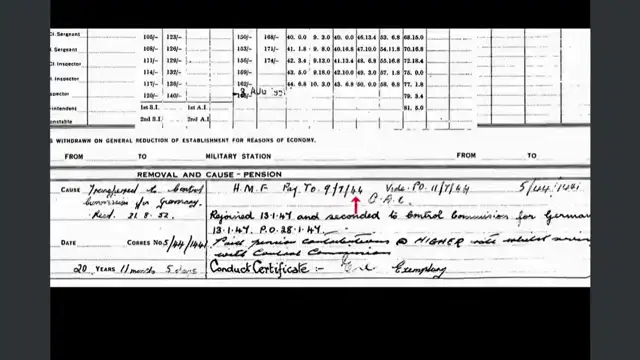 Cl. Sergeant 105/- 123/- 150/- 168/- 40. 0.0 9. 3.0 40. 0.0 46.13.4 53. 6.8 68.15.0
Sergeant 108/- 126/- 153/- 171/- 41. 1.8 9. 8.0 40.16.8 47.10.0 54.11.8 70.16.8
Cl. Inspector 111/- 129/- 156/- 174/- 42. 3.4 9.13.0 41.13.4 48. 6.8 55.16.8 72.18.4
Cl. Inspector 114/- 132/- 159/- 43. 5.0 9.18.0 42.10.0 49. 3.0 57. 1.8 75. 0.0
Inspector 117/- 136/- 162/- 44. 6.8 10. 3.0 43. 6.8 50. 0.0 58. 6.8 77. 1.8
120/- 140/- 8 AUG 79. 3.4
1st S.I. 1st A.I. 81. 5.0
2nd S.I. 2nd A.I.
S WITHDRAWN ON GENERAL REDUCTION OF ESTABLISHMENT FOR REASONS OF ECONOMY.
FROM TO MILITARY STATION FROM TO
REMOVAL AND CAUSE - PENSION
CAUSE Transferred to Control H.M.F Pay To 9/7/44 Vide P.O. 11/7/44 5/44/1441
Commission for Germany.
21.8.52.
Rejoined 13.1.47 and seconded to Control Commission for German
13.1.47. P.O. 28.1.47.
DATE CORRES No. 5/44/1441 Paid pension contributions @ HIGHER rate whilst
with Control Commission
20 YEARS 11 months 5 days Conduct Certificate :- Exemplary